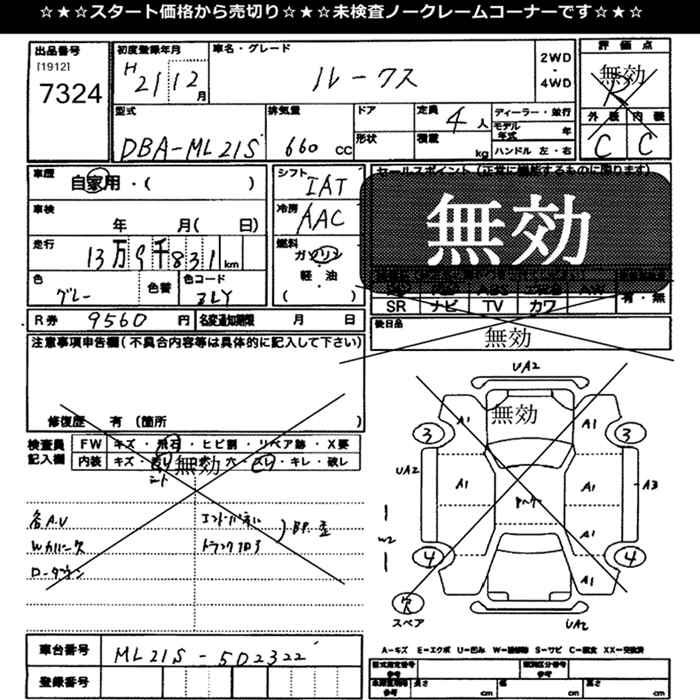 ☆★☆★スタート価格から売切り☆★☆★未検査ノークレームコーナーです☆★☆★
出品番号
[1912]
7324
初度登録年月
H 21 12 月
車名・グレード
ルークス
2WD
・
4WD
評価点
無効
R
外装 内装
C C
型式
DBA-ML21S
排気量
660 CC
ドア
形状
定員
4 人
積載
kg
ディーラー・並行
モデル年式 年
ハンドル 左・右
車歴
自家用・( )
車検
年 月( 日)
走行
13万9千831 km
色
グレー
色替
色コード
ZLY
シフト
IAT
冷房
AAC
燃料
ガソリン
軽・油
( )
セールスポイント(正常に機能するものに限ります)
無効
SR ナビ TV カワ
有・無
後日品
無効
R券 9560 円
名変通知期限 月 日
注意事項申告欄(不具合内容等は具体的に記入して下さい)
修復歴 有(箇所
検査員記入欄
FW キズ・飛石・ヒビ割・リペア跡・X要
内装 キズ・無効 穴・スレ・キレ・破レ
シート
各A.U
Wカバーク
エンドパネル
トランクフロア
UA2
A1
A1
3
3
UA2
A1
A1
A3
W2
A1
4
4
A1
スペア
UA2
無効
A-キズ E-エクボ U-凹み W-補修跡 S-サビ C-腐食 XX-交換済
車台番号
ML21S-502322
登録番号
型式指定番号
参考
類別区分番号
参考
長さ cm
幅 cm
高さ cm